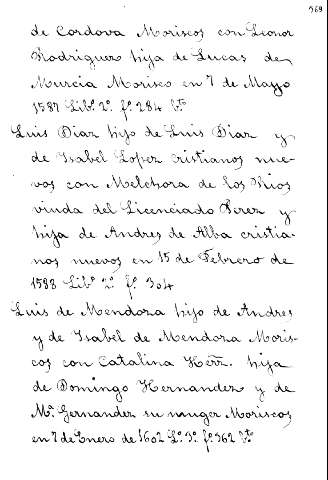 969
de Cordova Moriscos con Leonor
Rodriguez hija de Lucas de
Murcia Morisco en 7 de Mayo
1587 Lib.º 2.º f.º 284 v.to
Luis Diaz hijo de Luis Diaz y
de Isabel Lopez cristianos nue-
vos con Melchora de los Rios
viuda del Licenciado Perez y
hija de Andres de Alba cristia-
nos nuevos en 15 de Febrero de
1588 Lib.º 2.º f.º 304
Luis de Mendoza hijo de Andres
y de Isabel de Mendoza Moris-
cos con Catalina Herr.z hija
de Domingo Hernandez y de
M.ª Gernandez su muger Moriscos
en 7 de Enero de 1602 L.º 3.º f.º 362 v.to